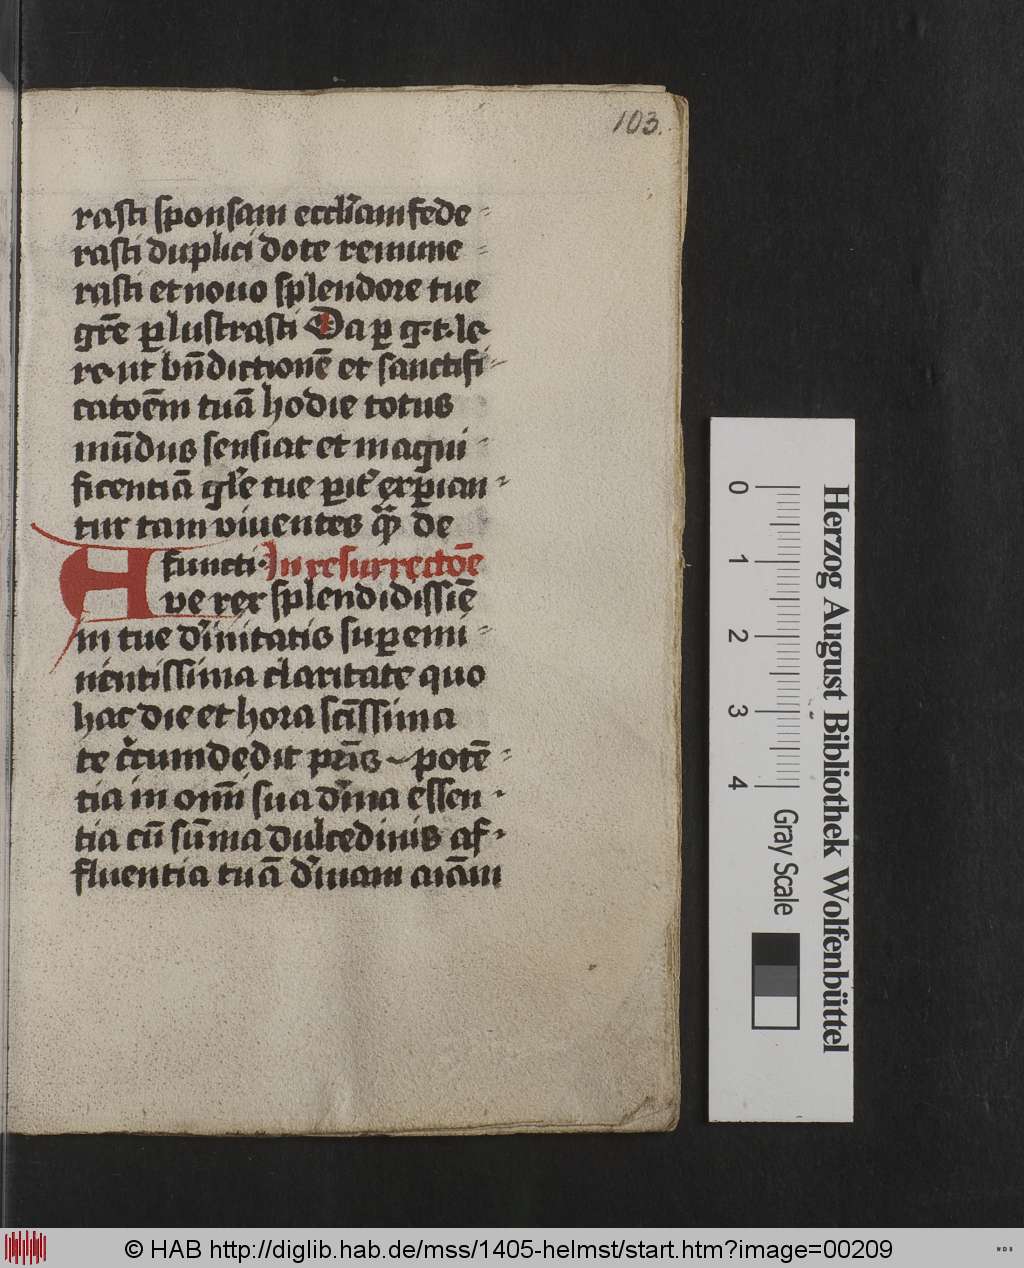 103.
rasti sponsam eccl̄iam fede-
rasti duplici dote remune-
rasti et nouo splendore tue
gr̄e ꝑlustrasti Da ꝑ g.t. le-
re ut bn̄dictionē et sanctifi-
catoēm tuā hodie totus
mūdus senciat et magni-
ficentiā gl̓e tue ꝑit̓ exꝑian-
tur tam viuentes qͣꝫ de
functi. In resurrectōe
Ave rex splendidissiē
in tue d̓initatis suꝑemi-
nentissima claritate quo
hac die et hora sc̄issima
te c̓cumdedit pr̄is potē-
tia in om̄i sua d̓ina essen-
tia cū sūma dulcedinis af-
fluentia tuā d̓inam aīam
0 1 2 3 4
Gray Scale
Herzog August Bibliothek Wolfenbüttel
© HAB http://diglib.hab.de/mss/1405-helmst/start.htm?image=00209